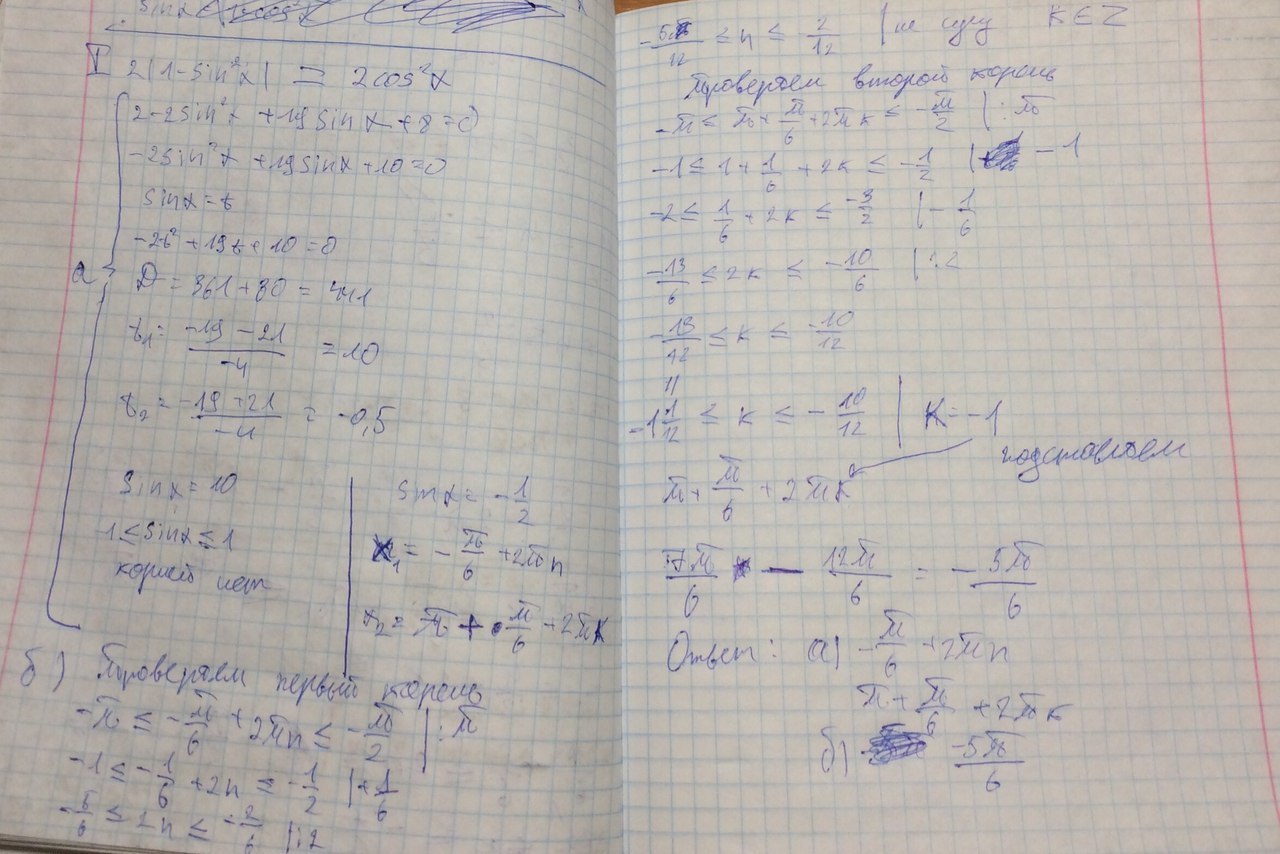 I 2(1-sin²x) = 2cos²x
2-2sin²x + 19sinx + 8 = 0
-2sin²x + 19sinx + 10 = 0
sinx = t
-2t² + 19t + 10 = 0
а
D = 361 + 80 = 441
t₁ = (-19 - 21)/(-4) = 10
t₂ = (-19 + 21)/(-4) = -0,5
sinx = 10
1 ≤ sinx ≤ 1
корней нет
sinx = -1/2
x₁ = -π/6 + 2πn
x₂ = π + π/6 + 2πk
б) Проверяем первый корень
-π ≤ -π/6 + 2πn ≤ -π/2 | :π
-1 ≤ -1/6 + 2n ≤ -1/2 | +1/6
-5/6 ≤ 2n ≤ -2/6 | :2
-5/12 ≤ n ≤ 2/12 | не K∈Z
Проверяем второй корень
-π ≤ π + π/6 + 2πk ≤ -π/2 | :π
-1 ≤ 1 + 1/6 + 2k ≤ -1/2 | -1
-2 ≤ 1/6 + 2k ≤ -3/2 | -1/6
-13/6 ≤ 2k ≤ -10/6 | :2
-13/12 ≤ k ≤ -10/12
-1 1/12 ≤ k ≤ -10/12 | K = -1
подставляем
π + π/6 + 2πk
7π/6 - 12π/6 = -5π/6
Ответ: а) -π/6 + 2πn
π + π/6 + 2πk
б) -5π/6